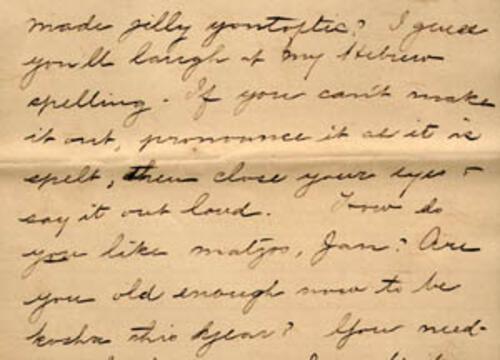 made jelly yontoftic? I guess
you'll laugh at my Hebrew
spelling. If you can't make
it out, pronounce it as it is
spelt, then close your eyes +
say it out loud. How do
you like matzos, Jan? Are
you old enough now to be
kosha this year? You need-